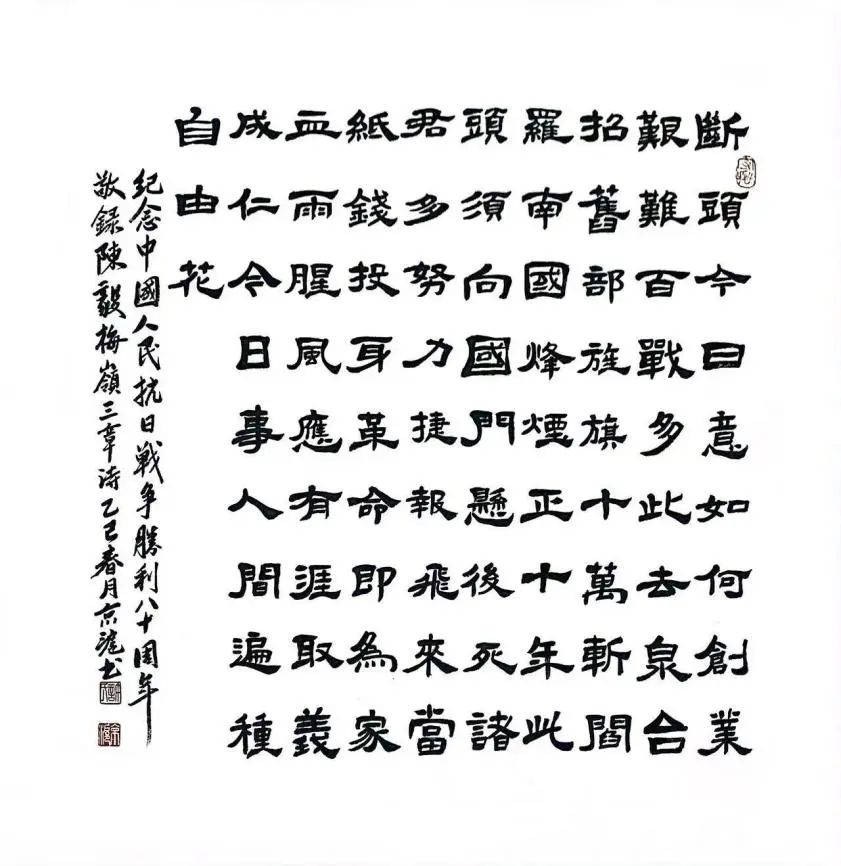 斷頭今日意如何創業
艱難百戰多此去泉台
招舊部旌旗十萬斬閻
羅南國烽煙正十年此
頭須向國門懸後死諸
君多努力捷報飛來當
紙錢投身革命即為家
血雨腥風應有涯取義
成仁今日事人間遍種
自由花
紀念中國人民抗日戰争勝利八十周年
敬録陳毅梅嶺三章诗乙巳春月京书